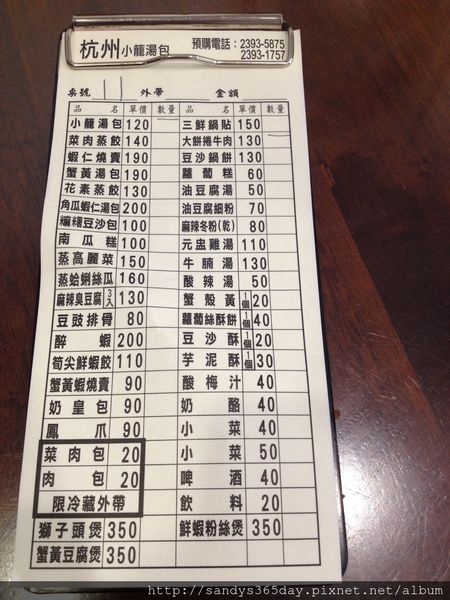 杭州小籠湯包 預購電話:2393-5875
2393-1757
桌號 11 外帶 金額
品名 單價 數量 品名 單價 數量
小籠湯包 120 三鮮鍋貼 150
菜肉蒸餃 140 大餅捲牛肉 130
蝦仁燒賣 190 豆沙鍋餅 130
蟹黃湯包 190 蘿蔔糕 60
花素蒸餃 130 油豆腐湯 50
角瓜蝦仁湯包 200 油豆腐細粉 70
糯糬豆沙包 100 麻辣冬粉(乾) 80
南瓜糕 100 元盅雞湯 110
蒸高麗菜 150 牛腩湯 130
蒸蛤蜊絲瓜 160 酸辣湯 50
麻辣臭豆腐 3入 130 蟹殼黃 1個 20
豆豉排骨 80 蘿蔔絲酥餅 1個 40
醉蝦 200 豆沙酥 1個 20
筍尖鮮蝦餃 110 芋泥酥 1個 30
蟹黃蝦燒賣 90 酸梅汁 40
奶皇包 90 奶酪 40
鳳爪 90 小菜 40
菜肉包 20 小菜 50
肉包 20 啤酒 40
限冷藏外帶 飲料 20
獅子頭煲 350 鮮蝦粉絲煲 350
蟹黃豆腐煲 350
http://sandys365day.pixnet.net/album